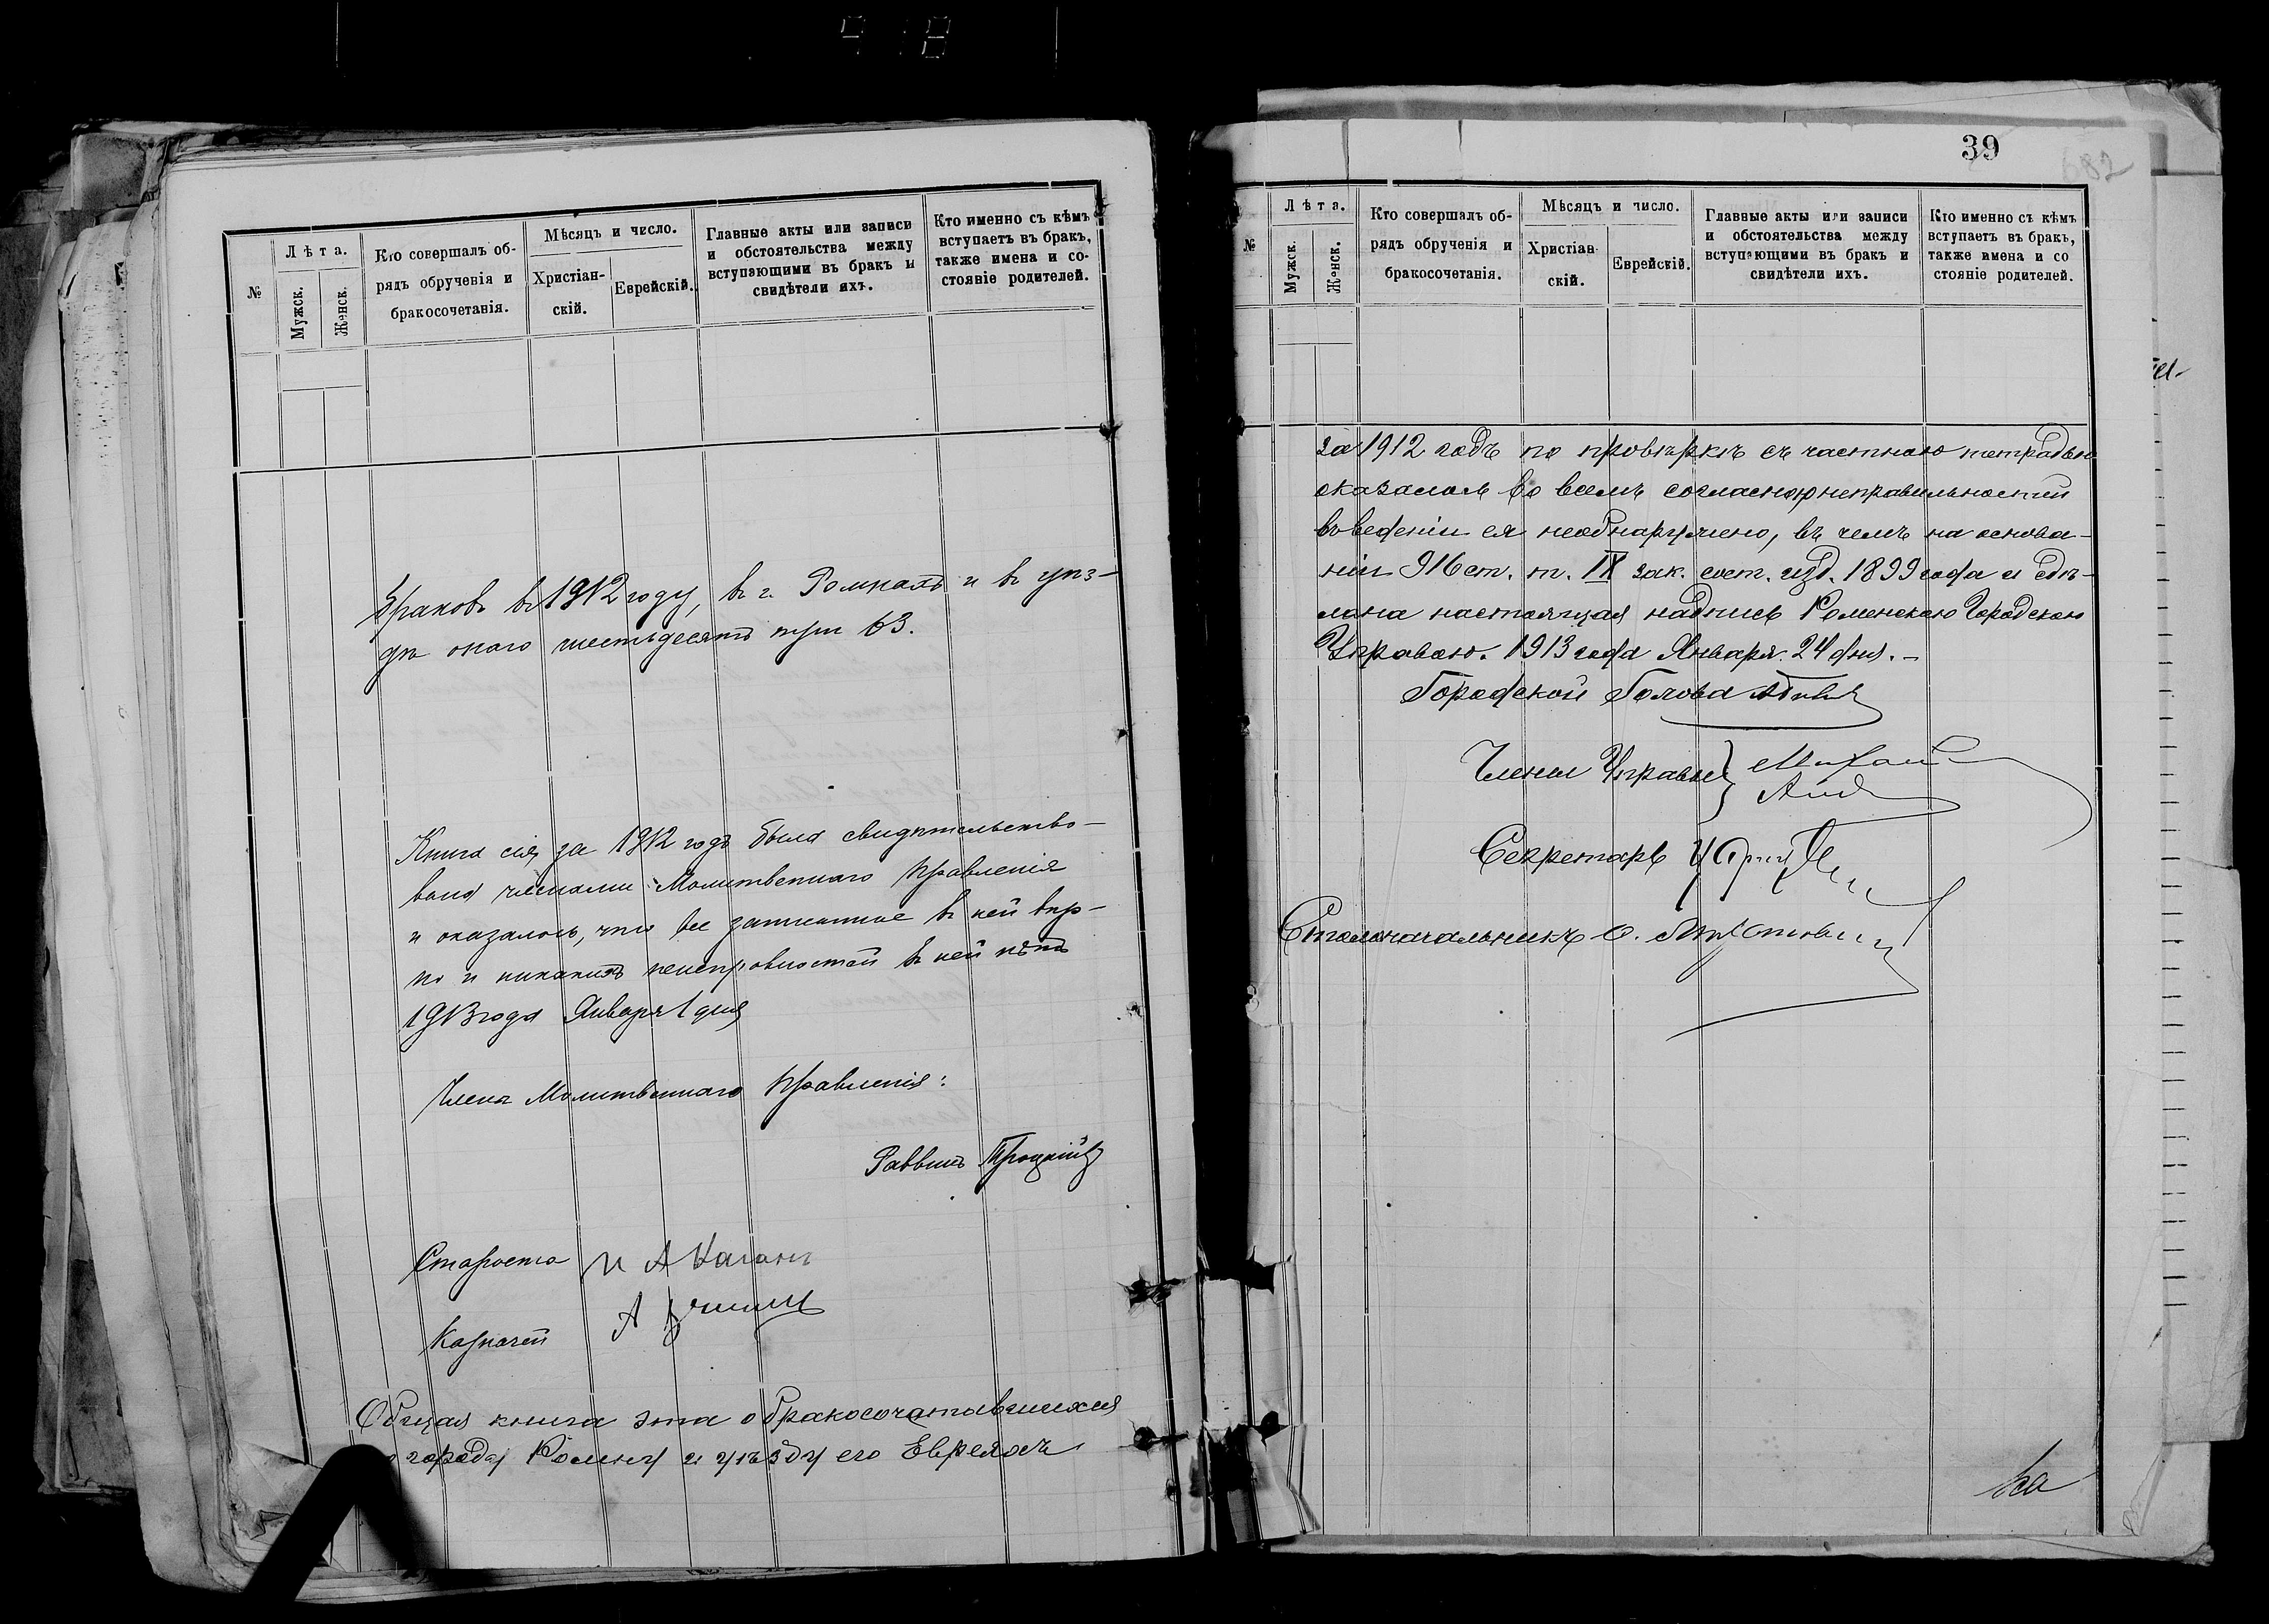 418
№
Лѣта.
Мужск.
Женск.
Кто совершалъ об-
рядъ обрученія и
бракосочетанія.
Мѣсяцъ и число.
Христіан-
скій.
Еврейскій.
Главные акты или записи
и обстоятельства между
вступающими въ бракъ и
свидѣтели ихъ.
Кто именно съ кѣмъ
вступаетъ въ бракъ,
также имена и со-
стояніе родителей.
Браковъ въ 1912 году, въ г. Ромнахъ и въ уѣз-
дѣ онаго шестьдесятъ три 63.
Книга сія за 1912 годъ была свидѣтельство-
вана членами Молитвеннаго Правленія
и оказалось, что все записанное въ ней вѣр-
но и никакихъ неисправностей въ ней нѣтъ
1913 года Января 1 дня
Члены Молитвеннаго Правленія:
Раввинъ Троцкій
Староста И А Каганъ
Казначей А
Общая книга эта о бракосочетавшихся
городу Ромну и уѣзду его Евреяхъ
39
682
№
Лѣта.
Мужск.
Женск.
Кто совершалъ об-
рядъ обрученія и
бракосочетанія.
Мѣсяцъ и число.
Христіан-
скій.
Еврейскій.
Главные акты или записи
и обстоятельства между
вступающими въ бракъ и
свидѣтели ихъ.
Кто именно съ кѣмъ
вступаетъ въ бракъ,
также имена и со
стояніе родителей.
за 1912 годъ по провѣркѣ съ частною тетрадью
оказалась во всемъ согласною, неправильностей
въ веденіи ея необнаружено, въ чемъ на основа-
ніи 916 ст. т. IX зак. сост. изд. 1899 года и сдѣ-
лана настоящая надпись Роменскою Городскою
Управою. 1913 года Января 24 дня.-
Городской Голова
Члены Управы
Секретарь
Столоначальникъ О.
на